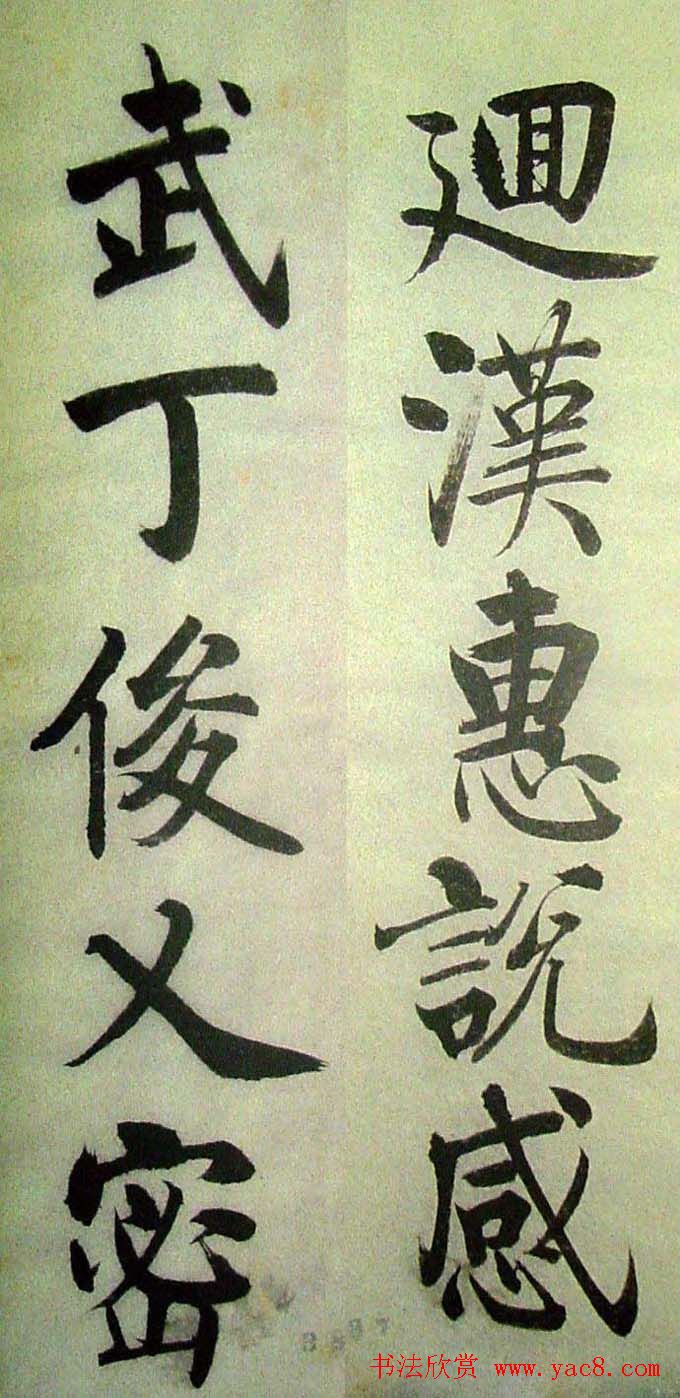 迴漢惠說感
武丁俊乂密
3887
书法欣赏 www.yac8.com